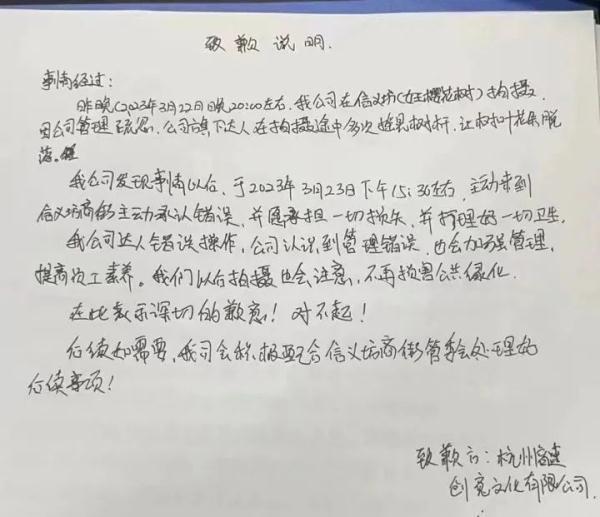 致歉说明.
事情经过:
昨晚(2023年3月22日晚20:00左右.我公司在信义坊(女王樱花树)拍摄.
因公司管理疏忽.公司旗下达人在拍摄途中多次摇晃树杆.让树叶花朵脱
落.
我公司发现事情以后.于2023年3月23日下午15:36左右.主动来到
信义坊商街主动承认错误,并愿承担一切损失,并打理好一切卫生.
我公司达人错误操作,公司认识到管理错误.也会加强管理,
提高员工素养。我们以后拍摄也会注意,不再损害公共绿化.
在此表示深切的歉意!对不起!
后续如需要,我司会积极配合信义坊商街管委会处理好
后续事项!
致歉方:杭州
创亮文化有限公司.